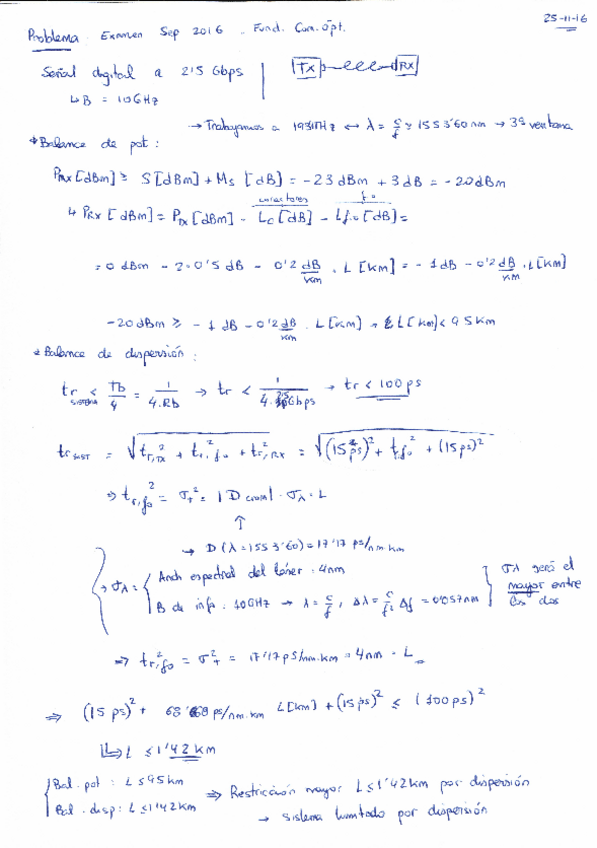 25-11-16
Problema Examen Sep 2016 . Fund. Com. Ópt.
Señal digital a 2'5 Gbps
TX RX
↳ B = 10GHz
→ Trabajamos a 193THz ↔ λ = c/f = 1553'60 nm → 3ª ventana
* Balance de pot :
PRx [dBm] ≥ S [dBm] + Ms [dB] = -23 dBm + 3 dB = -20 dBm
conectores f.o
↳ PRx [dBm] = PTx [dBm] - Lc [dB] - Lf.o [dB] =
= 0 dBm - 2·0'5 dB - 0'2 dB/km · L [km] = -1 dB - 0'2 dB/km · L [km]
-20 dBm ≥ -1 dB - 0'2 dB/km · L [km] → L [km] < 95 km
* Balance de dispersión :
tr SISTEMA < Tb/4 = 1/4.Rb → tr < 1/4.2'5Gbps → tr < 100 ps
tr SIST = √(t²r,TX + t²r,fo + t²r,RX) = √((15 ps)² + t²r,fo + (15 ps)²)
⇒ t²r,fo = σ²τ = |D crom| · σλ · L
↑
→ D (λ = 1553'60) = 17'17 ps/nm.km
→ σλ =
Anch espectral del láser : 4nm
B de info : 10GHz → λ = c/f , Δλ = c/f² Δf = 0'057nm
σλ será el mayor entre los dos
⇒ t²r,fo = σ²τ = 17'17 ps/nm.km · 4nm · L
⇒ (15 ps)² + 68'68 ps/nm.km L [km] + (15 ps)² ≤ (100 ps)²
↳ L ≤ 1'42 km
Bal. pot : L ≤ 95 km
Bal. disp : L ≤ 1'42 km
⇒ Restricción mayor L ≤ 1'42 km por dispersión
→ Sistema limitado por dispersión